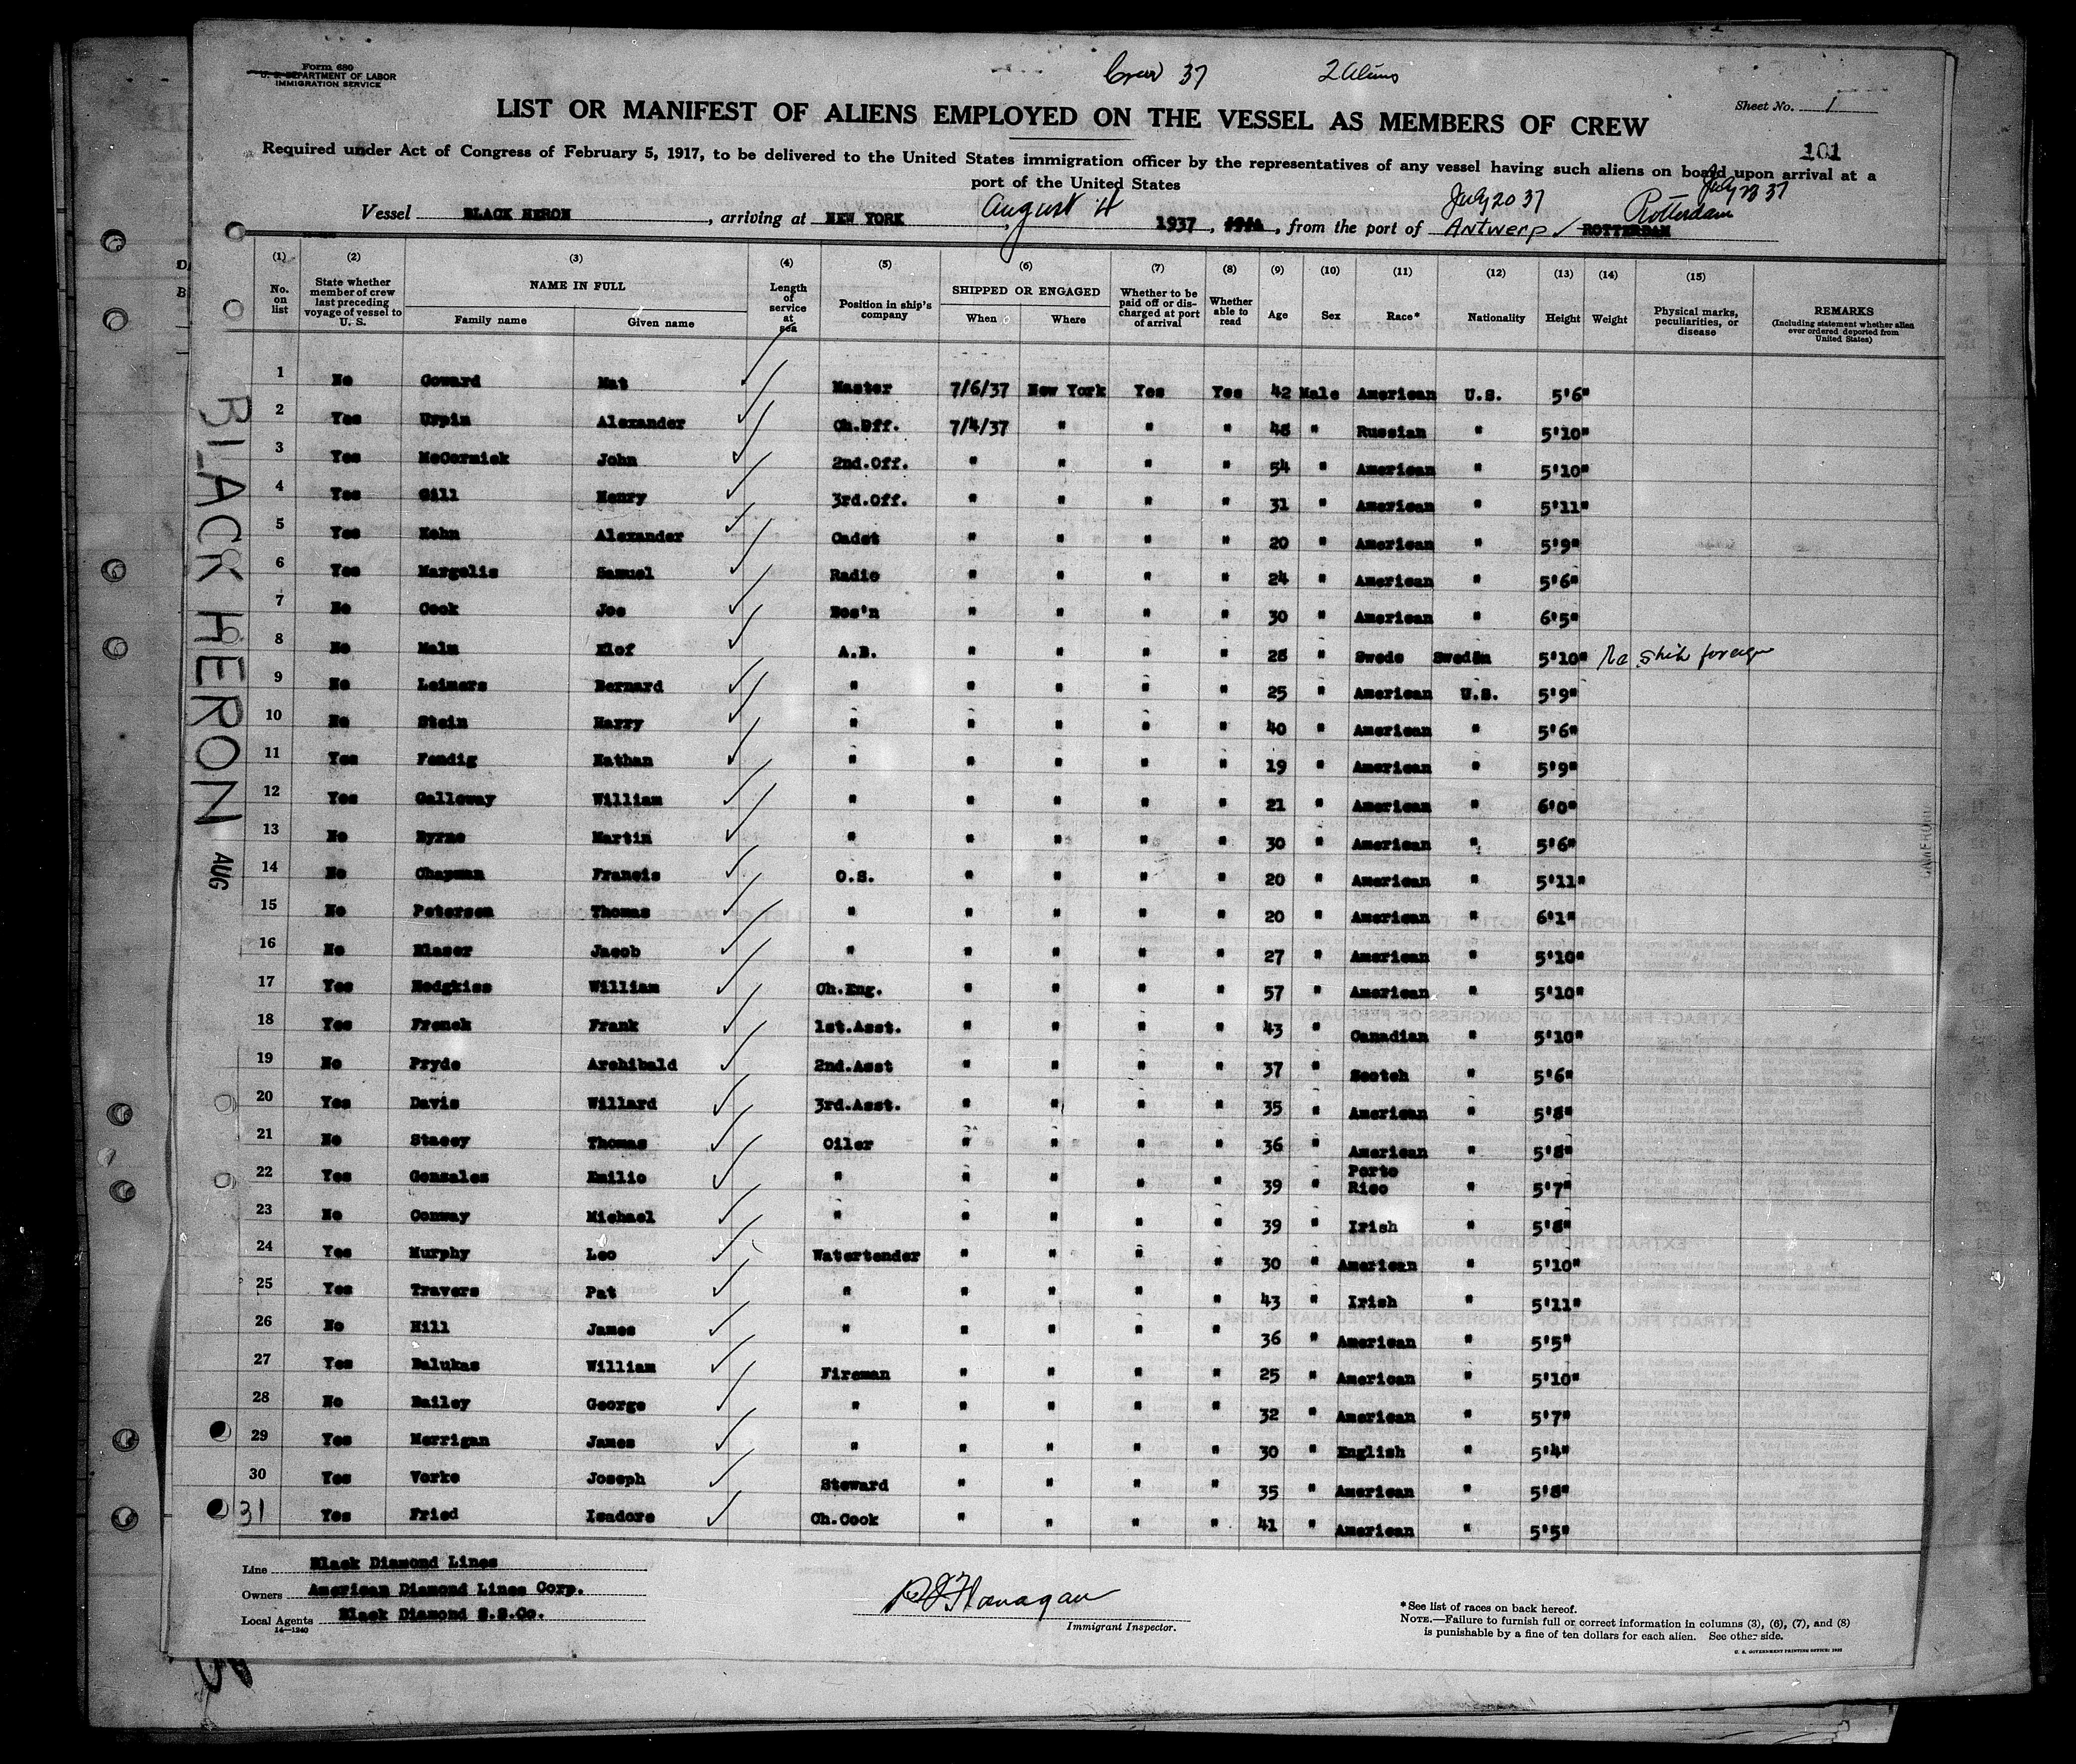 Form 680
U. S. DEPARTMENT OF LABOR
IMMIGRATION SERVICE
Crew 37 2 Aliens
LIST OR MANIFEST OF ALIENS EMPLOYED ON THE VESSEL AS MEMBERS OF CREW
Sheet No. 1
101
Required under Act of Congress of February 5, 1917, to be delivered to the United States immigration officer by the representatives of any vessel having such aliens on board upon arrival at a
port of the United States
July 20 37 Rotterdam July 23 37
Vessel BLACK HERON, arriving at NEW YORK August 4 1937, from the port of Antwerp ROTTERDAM
(1) (2) (3) (4) (5) (6) (7) (8) (9) (10) (11) (12) (13) (14) (15)
No. on list State whether member of crew last preceding voyage of vessel to U. S. NAME IN FULL Family name Given name Length of service at sea Position in ship's company SHIPPED OR ENGAGED When Where Whether to be paid off or discharged at port of arrival Whether able to read Age Sex Race* Nationality Height Weight Physical marks, peculiarities, or disease REMARKS (Including statement whether alien ever ordered deported from United States)
1 No Goward Mat Master 7/6/37 New York Yes Yes 42 Male American U.S. 5'6"
2 Yes Urpin Alexander Ch.Off. 7/4/37 " " " 48 " Russian " 5'10"
3 Yes McCormick John 2nd.Off. " " " " 54 " American " 5'10"
4 Yes Gill Henry 3rd.Off. " " " " 31 " American " 5'11"
5 Yes Kohn Alexander Cadet " " " " 20 " American " 5'9"
6 Yes Margolis Samuel Radio " " " " 24 " American " 5'6"
7 No Cook Joe Bos'n " " " " 30 " American " 6'5"
8 No Malm Elof A.B. " " " " 28 " Swede Sweden 5'10" No ship foreign
9 No Leimers Bernard " " " " " 25 " American U.S. 5'9"
10 No Stein Harry " " " " " 40 " American " 5'6"
11 Yes Fendig Nathan " " " " " 19 " American " 5'9"
12 Yes Galloway William " " " " " 21 " American " 6'0"
13 No Byrne Martin " " " " " 30 " American " 5'6"
14 No Chapman Francis O.S. " " " " 20 " American " 5'11"
15 No Peterson Thomas " " " " " 20 " American " 6'1"
16 No Blaser Jacob " " " " " 27 " American " 5'10"
17 Yes Hodgkiss William Ch.Eng. " " " " 57 " American " 5'10"
18 Yes French Frank 1st.Asst. " " " " 43 " Canadian " 5'10"
19 No Pryde Archibald 2nd.Asst " " " " 37 " Scotch " 5'6"
20 Yes Davis Willard 3rd.Asst. " " " " 35 " American " 5'8"
21 No Stacey Thomas Oiler " " " " 36 " American " 5'8"
22 Yes Gonzales Emilio " " " " " 39 " Porto Rico " 5'7"
23 No Conway Michael " " " " " 39 " Irish " 5'8"
24 Yes Murphy Leo Watertender " " " " 30 " American " 5'10"
25 Yes Travers Pat " " " " " 43 " Irish " 5'11"
26 No Hill James " " " " " 36 " American " 5'5"
27 Yes Balukas William Fireman " " " " 25 " American " 5'10"
28 No Bailey George " " " " " 32 " American " 5'7"
29 Yes Merrigan James " " " " " 30 " English " 5'4"
30 Yes Verke Joseph Steward " " " " 35 " American " 5'8"
31 Yes Fried Isadore Ch.Cook " " " " 41 " American " 5'5"
BLACK HERON AUG
Line Black Diamond Lines
Owners American Diamond Lines Corp.
Local Agents Black Diamond S.S.Co.
14—1240
Flanagan
Immigrant Inspector.
*See list of races on back hereof.
NOTE.—Failure to furnish full or correct information in columns (3), (6), (7), and (8)
is punishable by a fine of ten dollars for each alien. See other side.